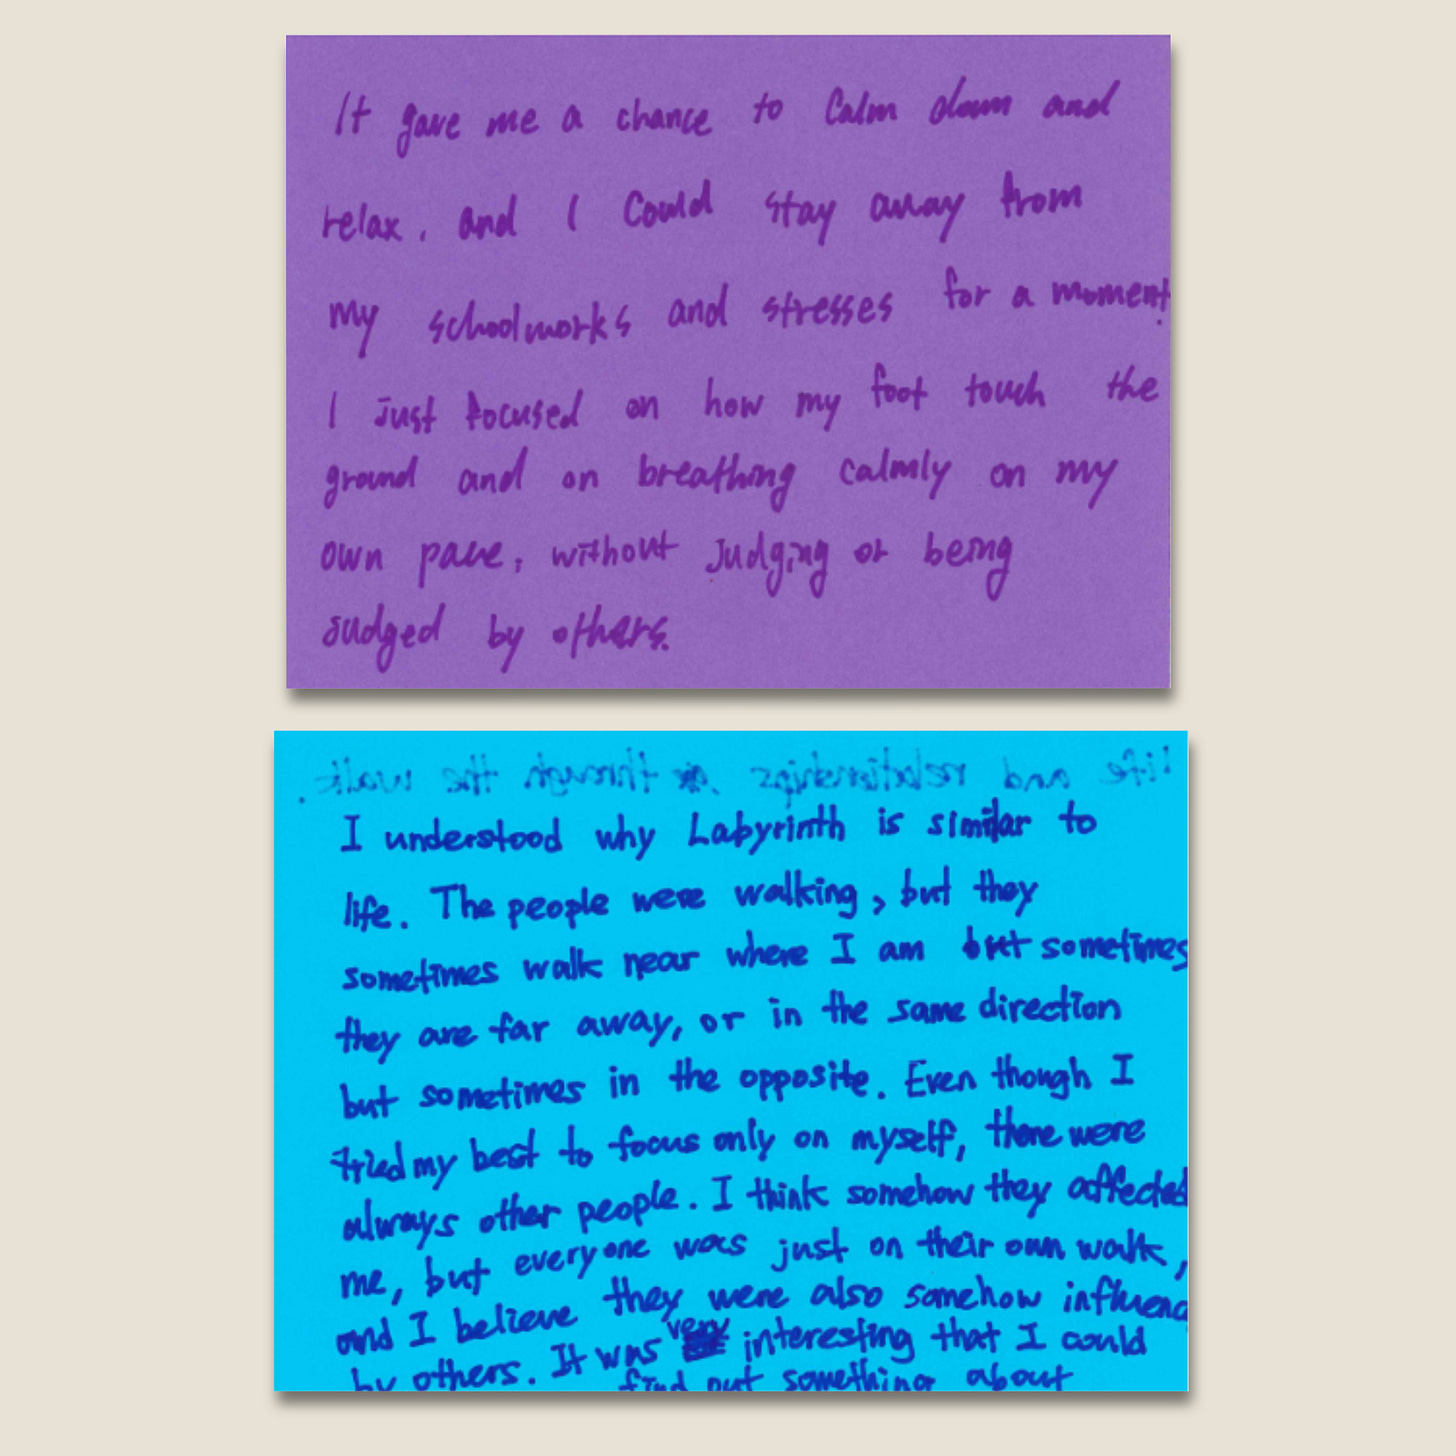 It gave me a chance to Calm down and
relax. and I Could stay away from
my schoolworks and stresses for a moment.
I Just focused on how my foot touch the
ground and on breathing calmly on my
own pace, without Judging or being
Judged by others.
life and relationships through the walk.
I understood why Labyrinth is similar to
life. The people were walking, but they
sometimes walk near where I am but sometimes
they are far away, or in the same direction
but sometimes in the opposite. Even though I
tried my best to focus only on myself, there were
always other people. I think somehow they affected
me, but everyone was just on their own walk,
and I believe they were also somehow influenc
by others. It was very interesting that I could
find out something about